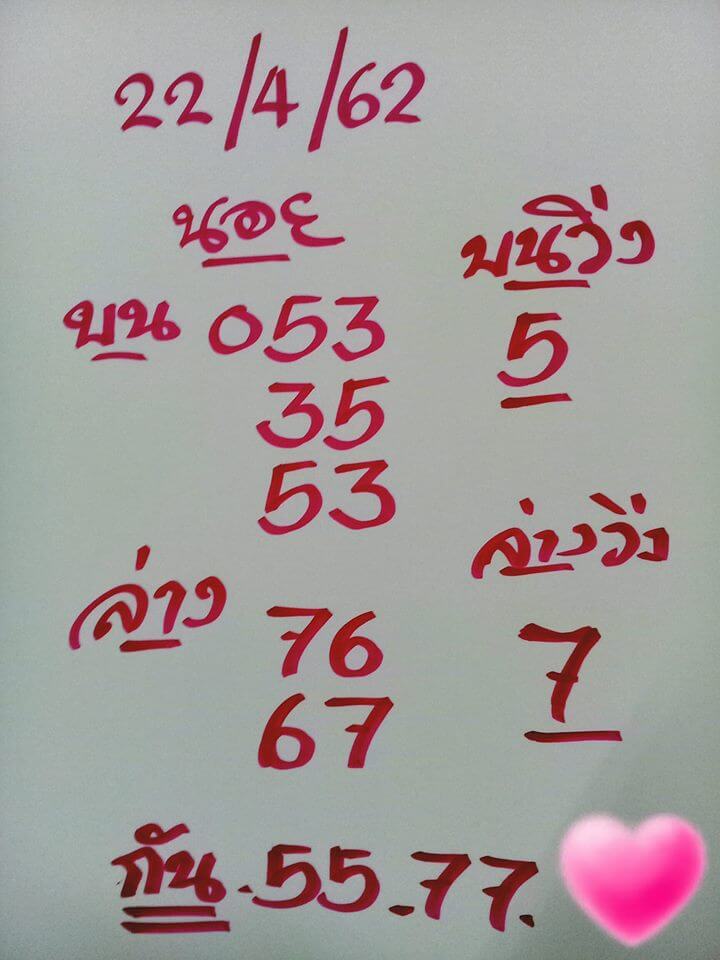 22/4/62
นอย
บน 053
35
53
บนวิ่ง
5
ล่าง 76
67
ล่างวิ่ง
7
กัน.55.77.